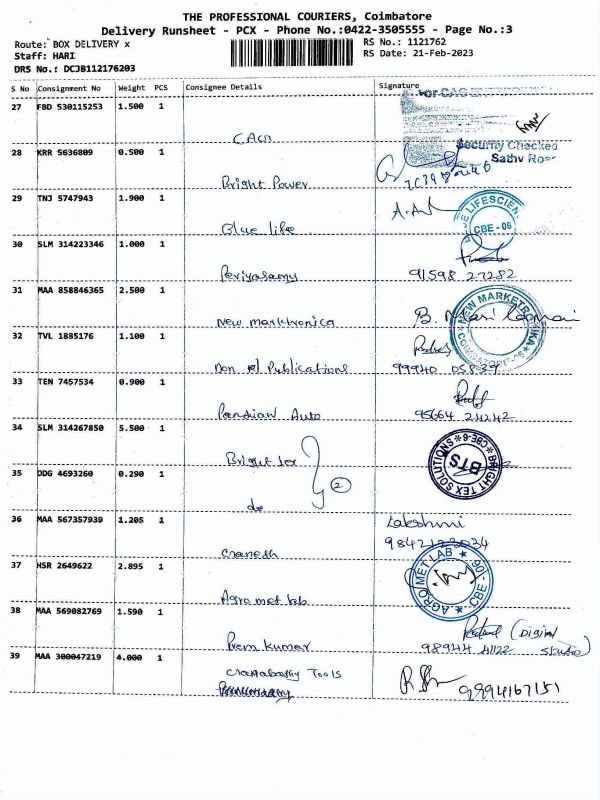 THE PROFESSIONAL COURIERS, Coimbatore
Delivery Runsheet - PCX - Phone No.:0422-3505555 - Page No.:3
Route: BOX DELIVERY x
RS No.: 1121762
Staff: HARI
RS Date: 21-Feb-2023
DRS No.: DCJB112176203
S No Consignment No Weight PCS Consignee Details Signature
27 FBD 530115253 1.500 1
Security Checked
28 KRR 5636809 0.500 1
Bright Power
29 TNJ 5747943 1.900 1
Blue life
CBE - 06
30 SLM 314223346 1.000 1
Periyasamy 91598 27282
31 MAA 858846365 2.500 1
New marktronica
NEW MARKETRONIKA
COIMBATORE-06
32 TVL 1885176 1.100 1
Publications 99940 05839
33 TEN 7457534 0.900 1
Pandian Auto 95664 24242
34 SLM 314267850 5.500 1
Bright Tex
BRIGHT TEX SOLUTIONS CBE-6
BTS
35 DDG 4693260 0.290 1
do 2
36 MAA 567357939 1.205 1
Lakshmi
Ganesh
37 HSR 2649622 2.895 1
Agro met lab
AGRO MET LAB
CBE
38 MAA 569082769 1.590 1
Prem Kumar
(Digital
98944 41122 studio)
39 MAA 300047219 4.000 1
Tools
9994167151